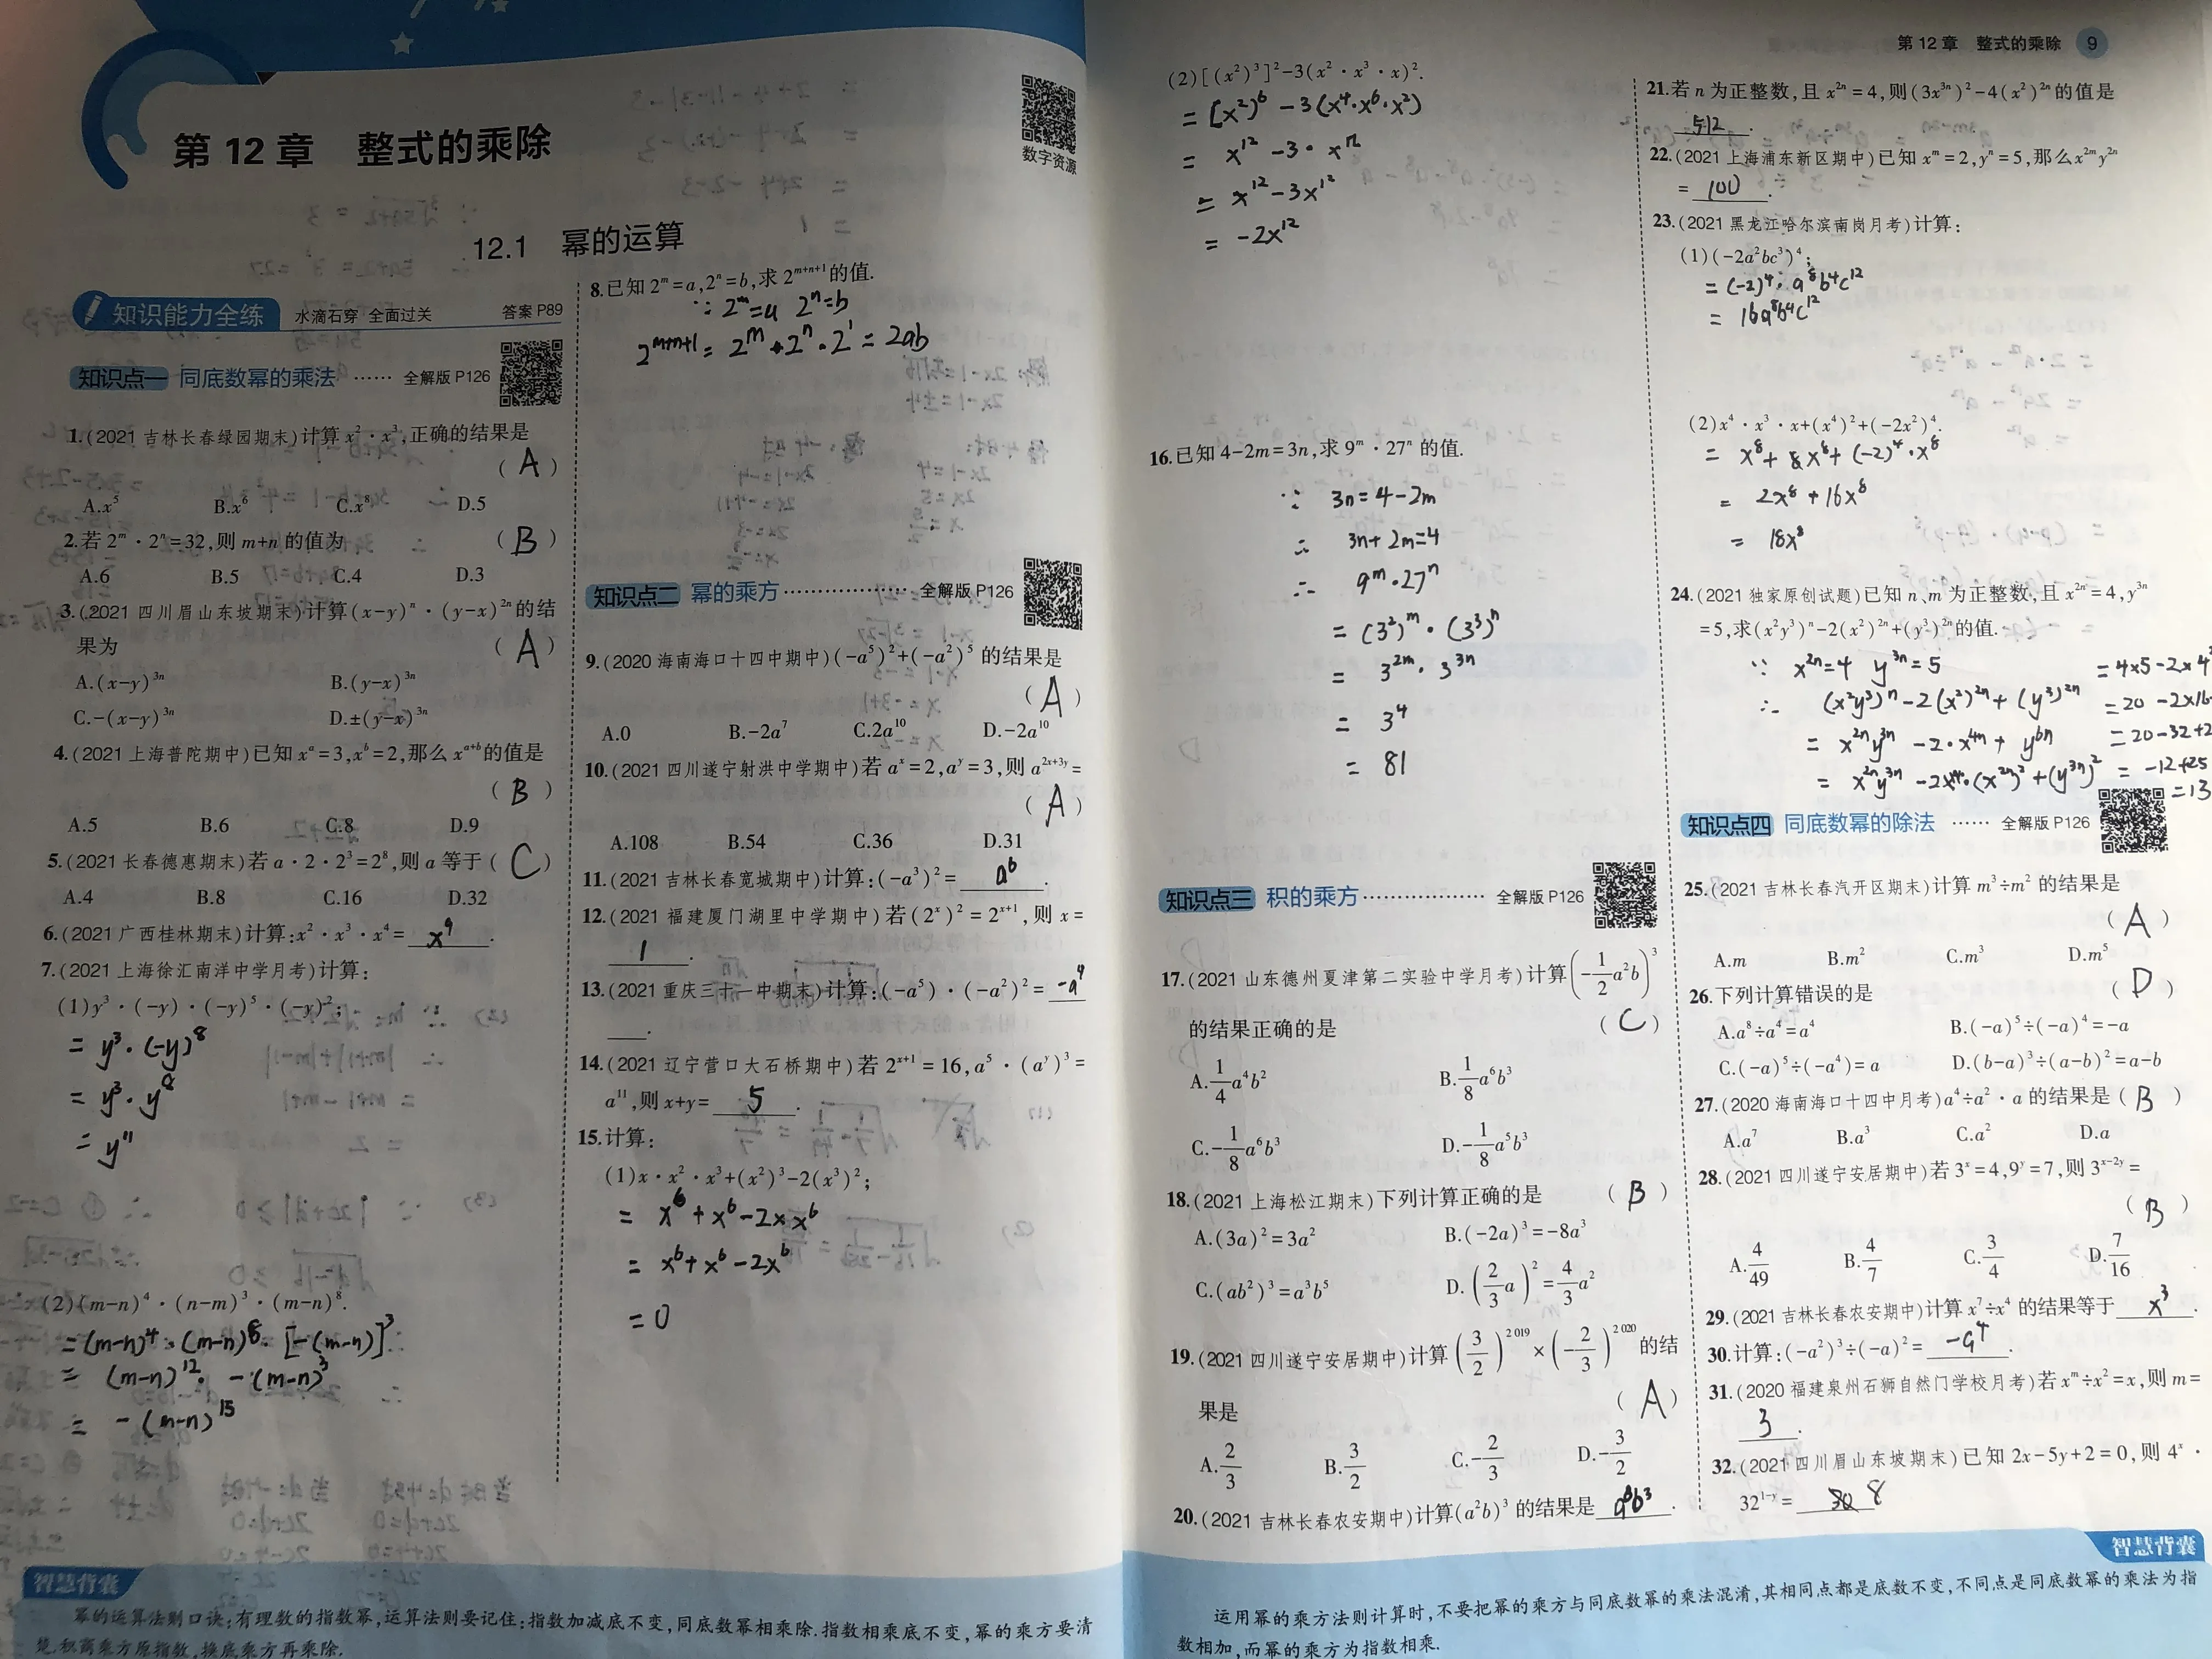 第 12 章 整式的乘除
数字资源
12.1 幂的运算
知识能力全练 水滴石穿 全面过关 答案 P89
知识点一 同底数幂的乘法 …… 全解版 P126
1.(2021 吉林长春绿园期末)计算 x²·x³,正确的结果是
( A )
A.x⁵ B.x⁶ C.x⁸ D.5
2.若 2ᵐ·2ⁿ=32,则 m+n 的值为 ( B )
A.6 B.5 C.4 D.3
3.(2021 四川眉山东坡期末)计算(x-y)ⁿ·(y-x)²ⁿ的结
果为 ( A )
A.(x-y)³ⁿ B.(y-x)³ⁿ
C.-(x-y)³ⁿ D.±(y-x)³ⁿ
4.(2021 上海普陀期中)已知 xᵃ=3,xᵇ=2,那么 xᵃ⁺ᵇ的值是
( B )
A.5 B.6 C.8 D.9
5.(2021 长春德惠期末)若 a·2·2³=2⁸,则 a 等于 ( C )
A.4 B.8 C.16 D.32
6.(2021 广西桂林期末)计算:x²·x³·x⁴= x⁹ .
7.(2021 上海徐汇南洋中学月考)计算:
(1)y³·(-y)·(-y)⁵·(-y)²;
= y³·(-y)⁸
= y³·y⁸
= y¹¹
(2)(m-n)⁴·(n-m)³·(m-n)⁸.
=(m-n)⁴·(m-n)⁸·[-(m-n)]³
= (m-n)¹²·-(m-n)³
= -(m-n)¹⁵
8.已知 2ᵐ=a,2ⁿ=b,求 2ᵐ⁺ⁿ⁺¹的值.
∵ 2ᵐ=a 2ⁿ=b
2ᵐ⁺ⁿ⁺¹= 2ᵐ·2ⁿ·2¹ = 2ab
知识点二 幂的乘方 ………………… 全解版 P126
9.(2020 海南海口十四中期中)(-a⁵)²+(-a²)⁵ 的结果是
( A )
A.0 B.-2a⁷ C.2a¹⁰ D.-2a¹⁰
10.(2021 四川遂宁射洪中学期中)若 aˣ=2,aʸ=3,则 a²ˣ⁺³ʸ=
( A )
A.108 B.54 C.36 D.31
11.(2021 吉林长春宽城期中)计算:(-a³)²= a⁶ .
12.(2021 福建厦门湖里中学期中)若(2ˣ)²=2ˣ⁺¹,则 x=
1 .
13.(2021 重庆三十一中期末)计算:(-a⁵)·(-a²)²= -a⁹
.
14.(2021 辽宁营口大石桥期中)若 2ˣ⁺¹=16,a⁵·(aʸ)³=
a¹¹,则 x+y= 5 .
15.计算:
(1)x·x²·x³+(x²)³-2(x³)²;
= x⁶+x⁶-2×x⁶
= x⁶+x⁶-2x⁶
=0
智慧背囊
幂的运算法则口诀:有理数的指数幂,运算法则要记住;指数加减底不变,同底数幂相乘除.指数相乘底不变,幂的乘方要清
楚.积商乘方原指数,换底乘方再乘除.
第 12 章 整式的乘除 9
(2)[(x²)³]²-3(x²·x³·x)².
= [x²)⁶ - 3(x⁴·x⁶·x²)
= x¹² -3·x¹²
= x¹²-3x¹²
= -2x¹²
16.已知 4-2m=3n,求 9ᵐ·27ⁿ 的值.
∵ 3n=4-2m
∴ 3n+2m=4
∴ 9ᵐ·27ⁿ
= (3²)ᵐ·(3³)ⁿ
= 3²ᵐ·3³ⁿ
= 3⁴
= 81
知识点三 积的乘方 …………… 全解版 P126
17.(2021 山东德州夏津第二实验中学月考)计算(-1/2 a²b)³
的结果正确的是 ( C )
A.1/4 a⁴b² B.1/8 a⁶b³
C.-1/8 a⁶b³ D.-1/8 a⁵b³
18.(2021 上海松江期末)下列计算正确的是 ( B )
A.(3a)²=3a² B.(-2a)³=-8a³
C.(ab²)³=a³b⁵ D.(2/3 a)²=4/3 a²
19.(2021 四川遂宁安居期中)计算(3/2)²⁰¹⁹×(-2/3)²⁰²⁰的结
果是 ( A )
A.2/3 B.3/2 C.-2/3 D.-3/2
20.(2021 吉林长春农安期中)计算(a²b)³ 的结果是 a⁶b³ .
21.若 n 为正整数,且 x²ⁿ=4,则(3x³ⁿ)²-4(x²)²ⁿ的值是
512 .
22.(2021 上海浦东新区期中)已知 xᵐ=2,yⁿ=5,那么 x²ᵐy²ⁿ
= 100 .
23.(2021 黑龙江哈尔滨南岗月考)计算:
(1)(-2a²bc³)⁴;
= (-2)⁴·a⁸b⁴c¹²
= 16a⁸b⁴c¹²
(2)x⁴·x³·x+(x⁴)²+(-2x²)⁴.
= x⁸+x⁸+(-2)⁴·x⁸
= 2x⁸+16x⁸
= 18x⁸
24.(2021 独家原创试题)已知 n、m 为正整数,且 x²ⁿ=4,y³ⁿ
=5,求(x²y³)ⁿ-2(x²)²ⁿ+(y³)²ⁿ的值.
∵ x²ⁿ=4 y³ⁿ=5
∴ (x²y³)ⁿ-2(x²)²ⁿ+(y³)²ⁿ
= x²ⁿy³ⁿ-2·x⁴ⁿ+y⁶ⁿ
= x²ⁿy³ⁿ-2·(x²ⁿ)²+(y³ⁿ)²
=4×5-2×4²
=20-2×16
=20-32+2
= -12+25
=13
知识点四 同底数幂的除法 …… 全解版 P126
25.(2021 吉林长春汽开区期末)计算 m³÷m² 的结果是
( A )
A.m B.m² C.m³ D.m⁵
26.下列计算错误的是 ( D )
A.a⁸÷a⁴=a⁴ B.(-a)⁵÷(-a)⁴=-a
C.(-a)⁵÷(-a⁴)=a D.(b-a)³÷(a-b)²=a-b
27.(2020 海南海口十四中月考)a⁴÷a²·a 的结果是 ( B )
A.a⁷ B.a³ C.a² D.a
28.(2021 四川遂宁安居期中)若 3ˣ=4,9ʸ=7,则 3ˣ⁻²ʸ=
( B )
A.4/49 B.4/7 C.3/4 D.7/16
29.(2021 吉林长春农安期中)计算 x⁷÷x⁴ 的结果等于 x³ .
30.计算:(-a²)³÷(-a)²= -a⁴ .
31.(2020 福建泉州石狮自然门学校月考)若 xᵐ÷x²=x,则 m=
3 .
32.(2021 四川眉山东坡期末)已知 2x-5y+2=0,则 4ˣ·
32¹⁻ʸ= 8
智慧背囊
运用幂的乘方法则计算时,不要把幂的乘方与同底数幂的乘法混淆,其相同点都是底数不变,不同点是同底数幂的乘法为指
数相加,而幂的乘方为指数相乘.